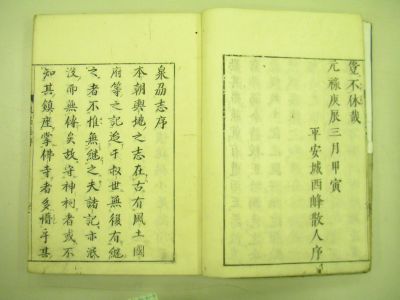 豈不休哉
元祿庚辰三月甲寅
平安城西峰散人序
泉州志序
本朝輿地之志在古有風土國
府等之記迨乎叔世無復有繼
之者不惟無繼之夫諸記亦泯
沒而無傳矣故守神祠者或不
知其鎮座掌佛寺者多惛乎其